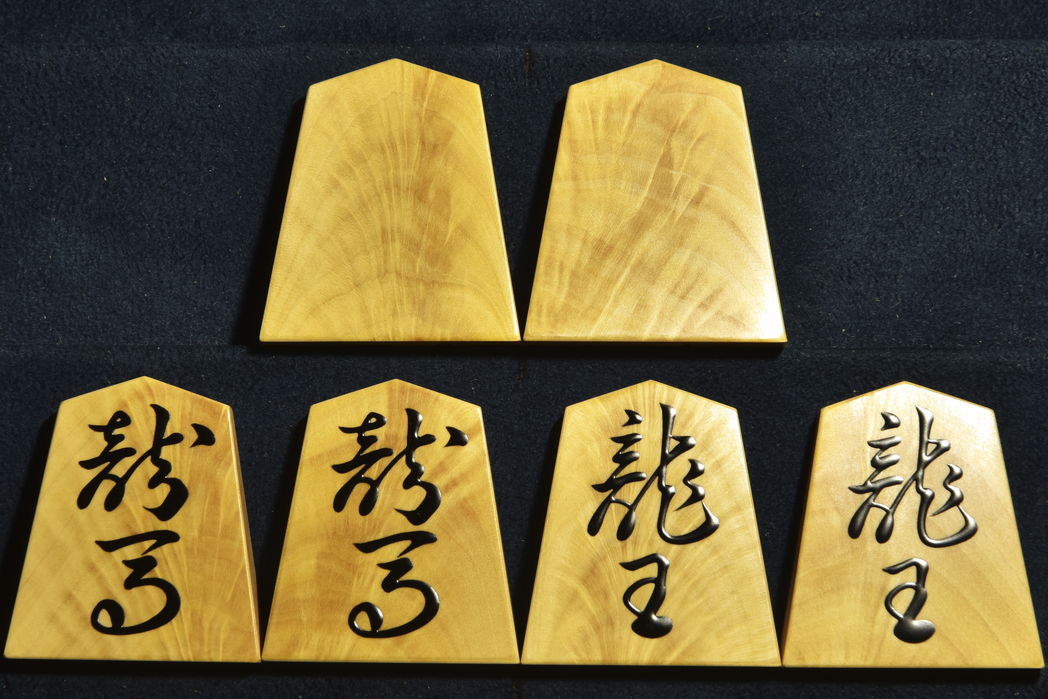 龍馬
龍馬
龍王
龍王